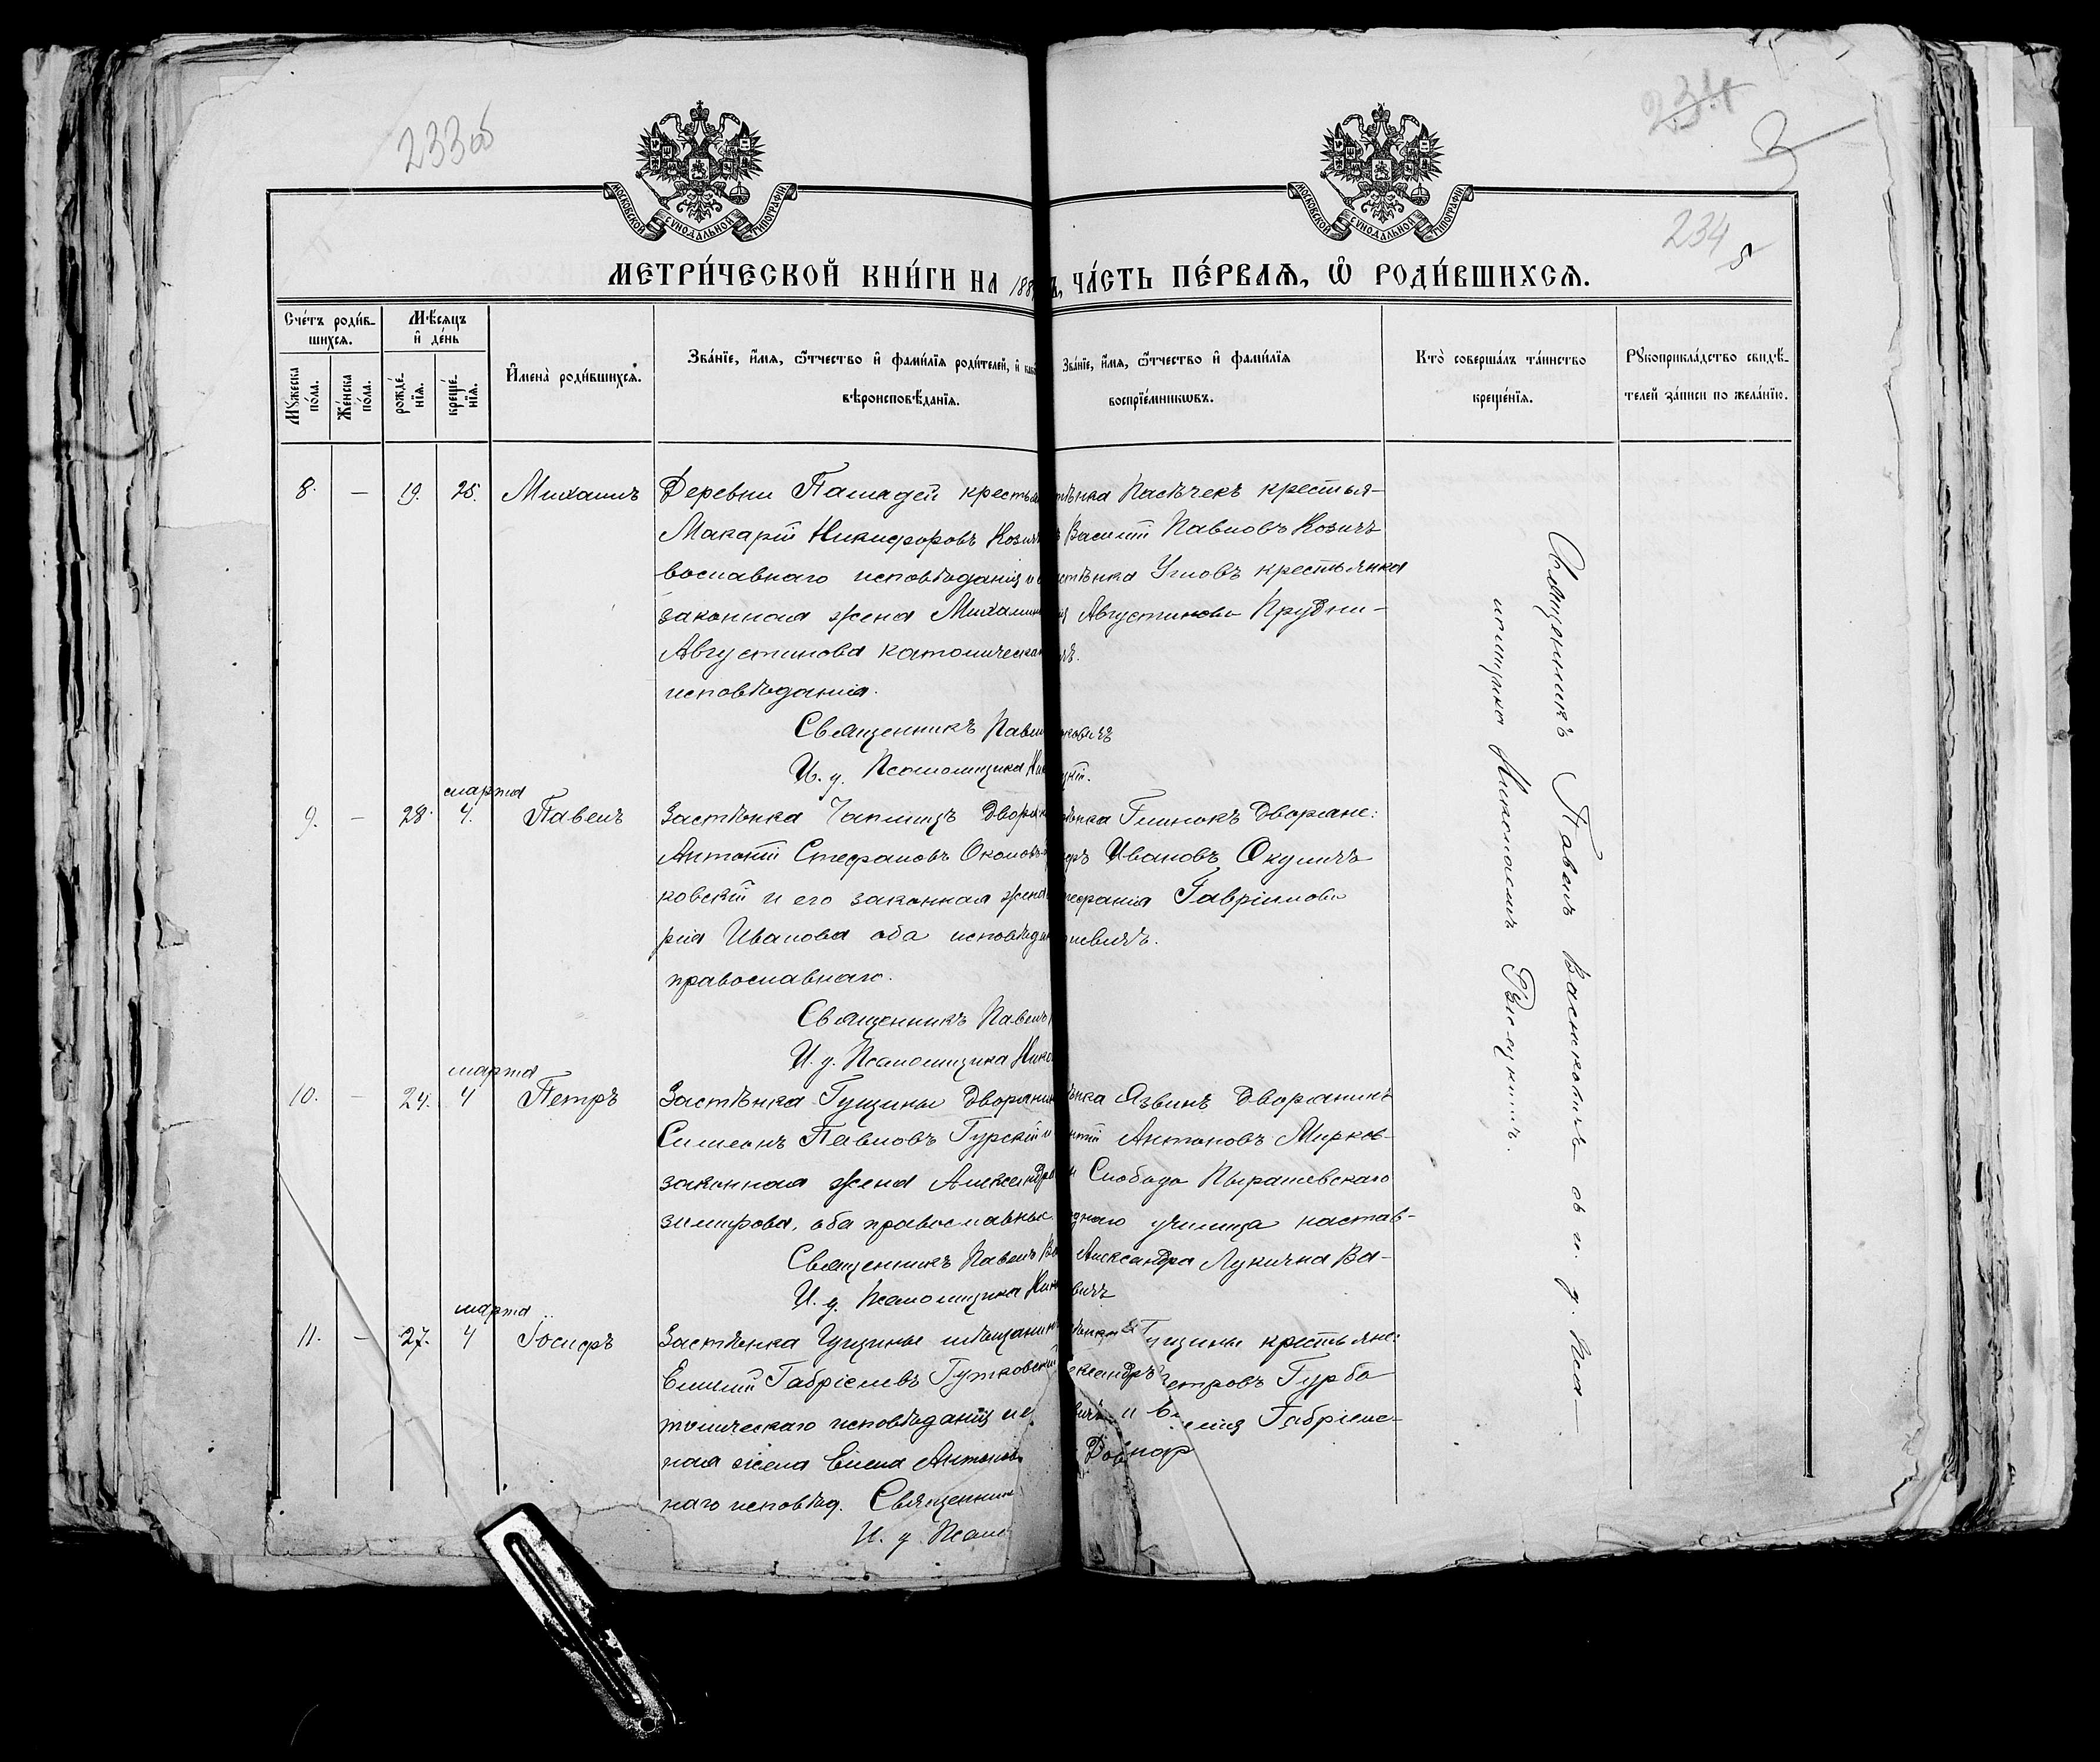 233об
234
3
234
5
МОСКОВСКОЙ СѴНОДАЛЬНОЙ ТИПОГРАФІИ
МОСКОВСКОЙ СѴНОДАЛЬНОЙ ТИПОГРАФІИ
МЕТРИ́ЧЕСКОЙ КНИ́ГИ НА 188
ЧА́СТЬ ПЕ́РВАѦ, Ѡ҆ РОДИ́ВШИХСѦ.
Сче́тъ роди́в-
шихсѧ.
Мꙋжеска
по́ла.
Же́нска
по́ла.
Мѣ́сѧцъ
и҆ де́нь
рожде́-
нїѧ.
креще́-
нїѧ.
И҆мена̀ роди́вшихсѧ.
Зва́нїе, и҆́мѧ, ѻ҆́тчество и҆ фами́лїѧ роди́телей, и҆
вѣроисповѣ́данїѧ.
Зва́нїе, и҆́мѧ, ѻ҆́тчество и҆ фами́лїѧ
воспрїе́мникѡвъ.
Кто̀ соверша́лъ та́инство
креще́нїѧ.
Рꙋкоприкла́дство свидѣ́-
телей за́писи по жела́нїю.
8. — 19. 25. Михаилъ
Деревни крестья
Макарій Никифоровъ Козичъ
вославнаго исповѣданія и
законная жена Михалин
Августинова католическаго
исповѣданія.
Священникъ Павел
И. д. Псаломщика Ник
тѣнка Пасѣчекъ крестья-
Василій Павловъ Козичъ
стѣнка Угловъ крестьянка
Августинова Прудни-
чъ.
ковичъ
9. — 28. марта 4. Павелъ
Застѣнка Чаплицъ Дворян
Антоній Стефановъ Околовъ
ковскій и его законная жена
рія Иванова оба исповѣдан
православнаго.
Священникъ Павелъ
И. д. Псаломщика Нико
ѣнка Глинокъ Дворяне:
дръ Ивановъ Окуличъ
тефанія Гавріилова
левичъ.
10. — 24. марта 4 Петръ
Застѣнка Гущины Дворянин
Симеонъ Павловъ Гурскій и
законная жена Александра
зимірова, оба православные.
Священникъ Павелъ Ва
И. д. Псаломщика Ник
ѣнка Язвинъ Дворянинъ
нтій Антоновъ Мирков-
и Слобода Пырашевскаго
днаго училища настав-
Александра Лукична Ва-
вичъ
11. — 27. марта 4 Іосифъ
Застѣнка Гущины мѣщанин
Емилій Габріелевъ Гутковскій
толическаго исповѣданія и е
ная жена Елена Антонов
наго исповѣд. Священник
И. д. Псало
ѣнка Гущины крестьяне:
ександръ Петровъ Гурбо
вичъ и Емилія Габріеле-
Довнар
Священникъ Павелъ Васюковичъ съ и. д. Пса-
ломщика Николаемъ